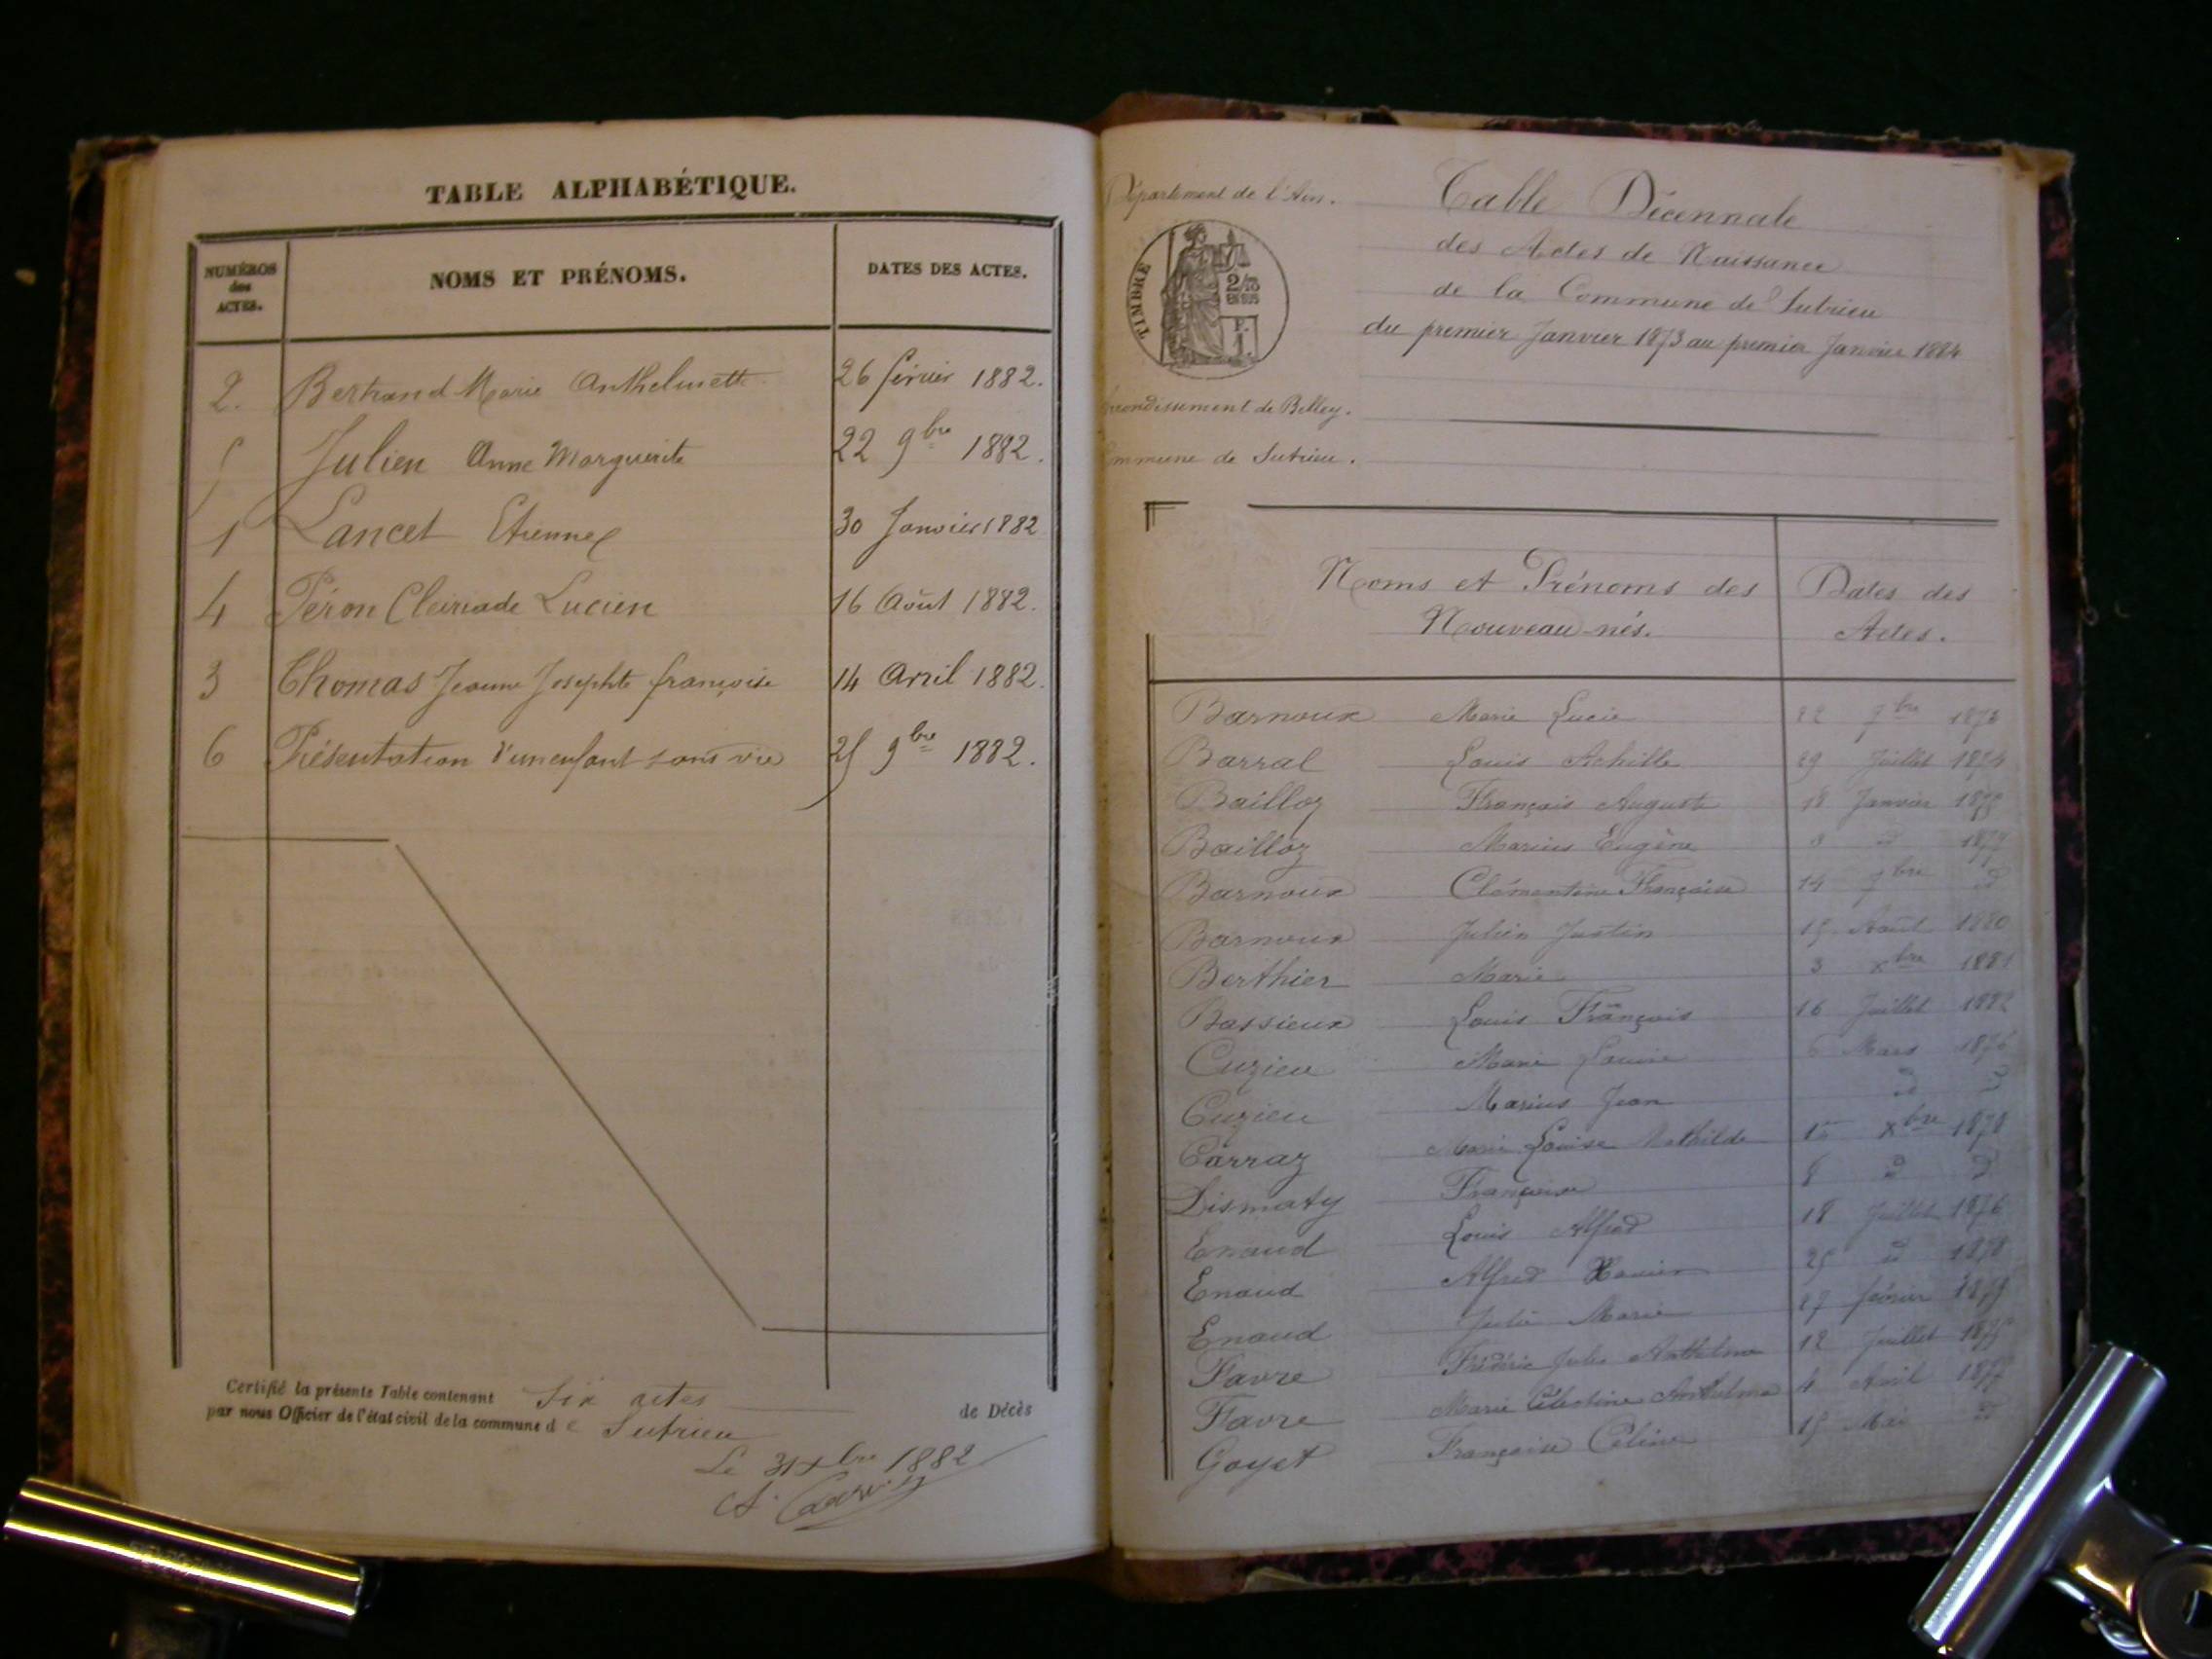 TABLE ALPHABÉTIQUE.
NUMÉROS des ACTES. NOMS ET PRÉNOMS. DATES DES ACTES.
2. Bertrand Marie Anthelmette 26 février 1882.
5 Julien Anne Marguerite 22 9bre 1882.
1 Lancet Etienne 30 Janvier 1882
4 Péron Cleiriade Lucien 16 Août 1882.
3 Thomas Jeanne Josephte françoise 14 Avril 1882.
6 Présentation d'un enfant sans vie 25 9bre 1882.
Certifié la présente Table contenant Six actes de Décès
par nous Officier de l'état civil de la commune de Sutrieu
Le 31 xbre 1882
Département de l'Ain.
TIMBRE
2/10
EN SUS
F.
1.
Arrondissement de Belley.
Commune de Sutrieu.
Table Décennale
des Actes de Naissance
de la Commune de Sutrieu
du premier Janvier 1873 au premier Janvier 1884
Noms et Prénoms des Dates des
Nouveau-nés. Actes.
Barnoux Marie Lucie 22 7bre 1873
Barral Louis Achille 29 Juillet 1874
Bailloz François Auguste 18 Janvier
Bailloz Marius Eugène 3 d 1879
Barnoux Clémentine Françoise 14 7bre d
Barnoux Julien Justin 15 Août 1880
Berthier Marie 3 xbre 1881
Bassieux Louis François 16 Juillet 1882
Cuzieu Marie Louise 6 Mars 1876
Cuzieu Marius Jean d d
Carraz Marie Louise Mathilde 1er xbre 1878
Dismaty Françoise 8 d d
Enaud Louis Alfred 18 Juillet 1876
Enaud Alfred Xavier 25 d 1878
Enaud Julie Marie 27 février
Favre Frédéric Jules Anthelme 12 Juillet 1875
Favre Marie Célestine Anthelme 4 Avril 1877
Goyet Françoise Céline 15 Mai d